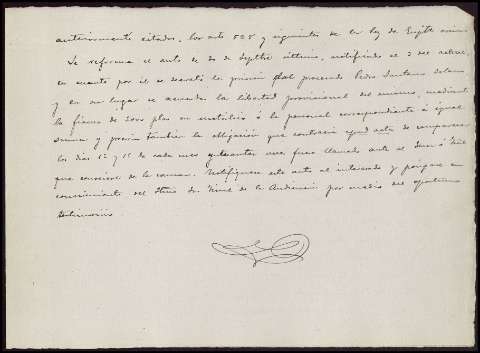 anteriormente citados, los arts 528 y siguientes de la ley de Enjto crimi
Se reforma el auto de de Septbre último, notificado el 2 del actual
en cuanto por él se decretó la prisión del procesado Pedro Santana
y en su lugar se acuerda la libertad provisional del mismo, mediante
la fianza de 2000 ptas en metálico ó la personal correspondiente á igual
suma y previa también la obligación que contraerá apud acta de comparecer
los dias 1º y 15 de cada mes y cuantas veces fuere llamado ante el Juez ó Trib
que conociere de la causa. Notifíquese este auto al interesado y póngase en
conocimiento del Sr. Fiscal de la Audiencia por medio del oportuno
testimonio